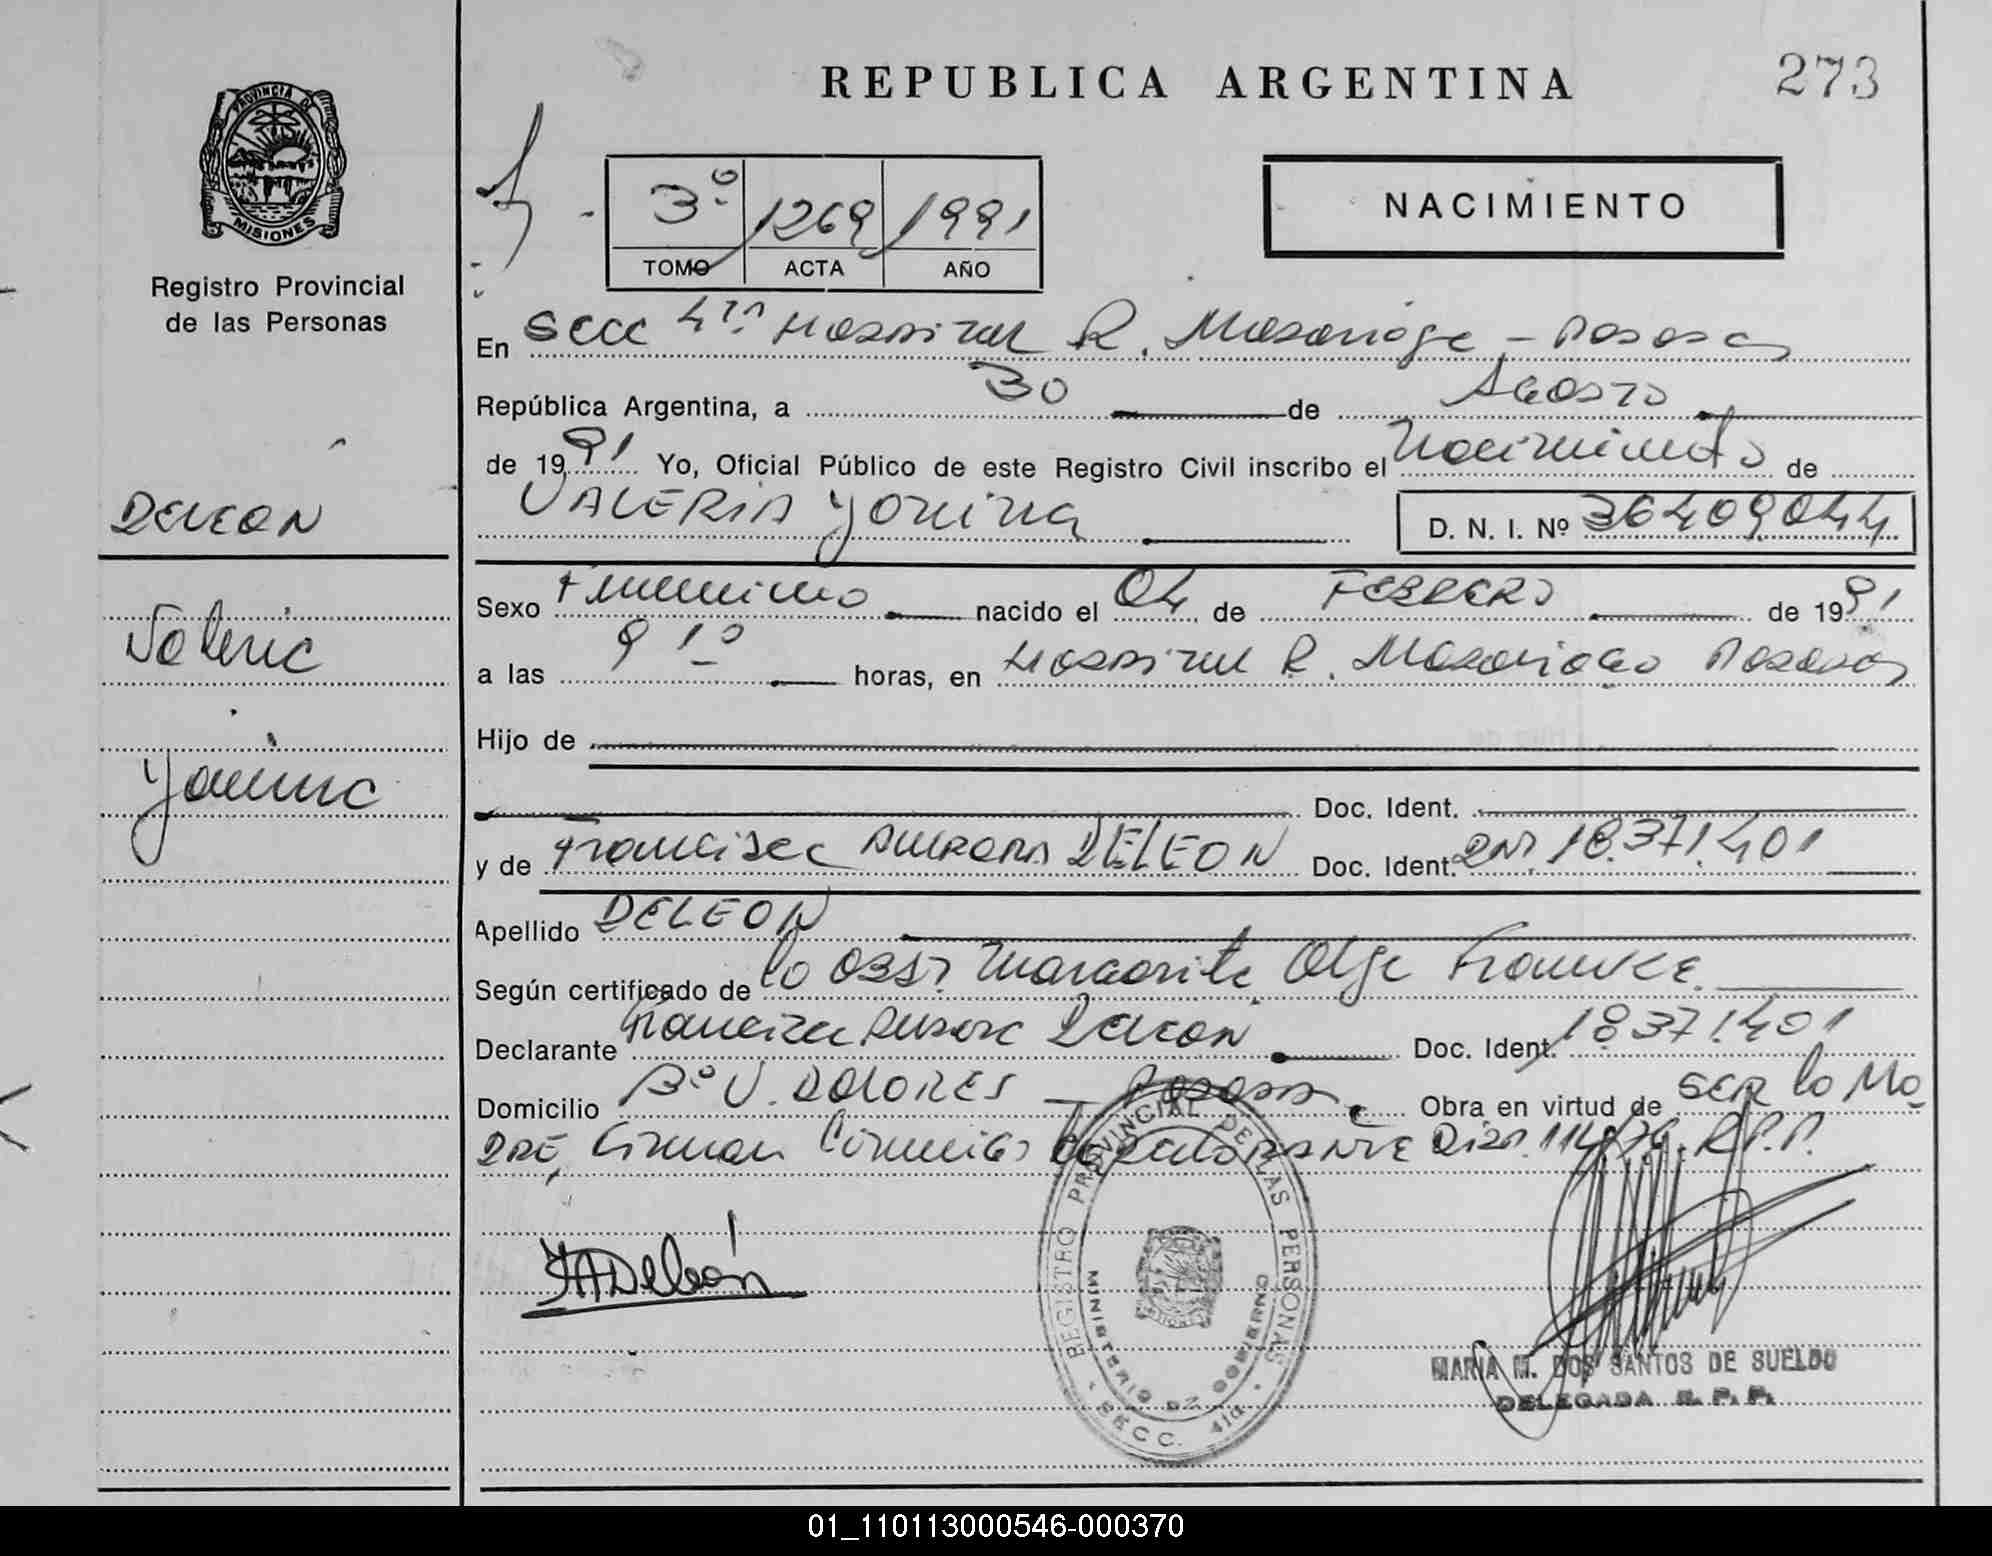 REPUBLICA ARGENTINA
273
PROVINCIA D
MISIONES
Registro Provincial
de las Personas
3º 1269 1991
TOMO ACTA AÑO
NACIMIENTO
En Secc 4ta Hospital R. Madariaga - Posadas
República Argentina, a 30 de Agosto
de 1991 Yo, Oficial Público de este Registro Civil inscribo el Nacimiento de
VALERIA Yanina
D. N. I. Nº 36409044
DELEON
Valeria
Yanina
Sexo Femenino nacido el 04 de FEBRERO de 1991
a las 9 10 horas, en Hospital R. Madariaga Posadas
Hijo de
Doc. Ident.
y de Francisca AURORA DELEON Doc. Ident. DNI 18.371.401
Apellido DELEON
Según certificado de la Obst Margarita Olga Franke
Declarante Francisca Aurora Deleon Doc. Ident. 18.371.401
Domicilio Bº V. DOLORES - Posadas. Obra en virtud de SER la Ma
DRE, Firman Conmigo la Declarante Disp. 114/76. R.P.P.
FADeleón
REGISTRO PROVINCIAL DE LAS PERSONAS
MINISTERIO DE GOBIERNO
SECC. 4ta
MARIA M. DOS SANTOS DE SUELDO
DELEGADA R. P. P.
01_110113000546-000370